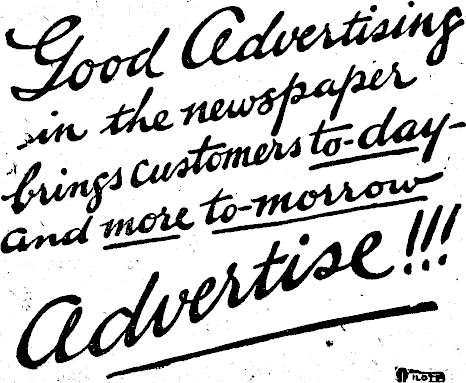 Good Advertising
in the newspaper
brings customers to-day-
and more to-morrow
Advertise!!!